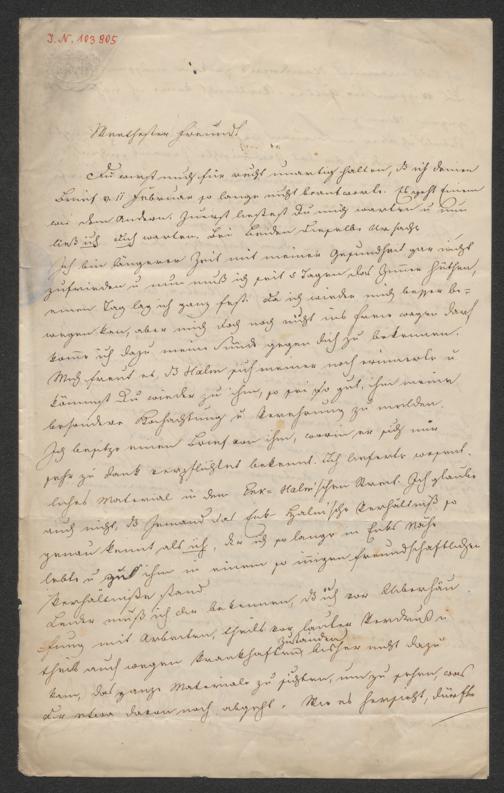 J. N. 103905
Werthester Freund!
Du wirst mich für recht unartig halten, dß ich deinen
Brief v 11 Februar so lange nicht beantworte. Es geht Einem
wie dem Andern. Zuerst ließest Du mich warten u nun
ließ ich Dich warten. Bei beiden dieselbe Ursache
Ich bin längerer Zeit mit meiner Gesundheit gar nicht
zufrieden u nun muß ich seit 5 Tagen das Zimmer hüthen,
einen Tag lag ich ganz fest. Da ich wieder mich besser be-
wegen kan, aber mich doch noch nicht ins freie wagen darf
komme ich dazu meine Sünde gegen dich zu bekennen.
Mich freut es, dß Halm sich meiner noch erinnerte u
kömmst Du wieder zu ihm, so sei so gut, ihm meine
besondere Hochachtung u Verehrung zu melden.
Ich besitze einen Brief von ihm, worin er sich mir
sehr zu Dank verpflichtet bekennt. Ich lieferte wesent-
liches Material in dem Enk-Halmischen Streit. Ich glaube
auch nicht, dß Jemand das Enk Halmsche Verhältniß so
genau kennt als ich, der ich so lange in Enks Nähe
lebte u zu ihm in einem so innigen freundschaftlichen
Verhältniße stand
Leider muß ich dir bekennen, dß ich vor Überhäu
fung mit Arbeiten, theils vor lauter Verdruß u
theils auch wegen krankhaften Zuständen bisher nicht dazu
kam, das ganze Materiale zu sichten, um zu sehen, was
dir etwa davon noch abgeht. Wie es hersieht, dürfte